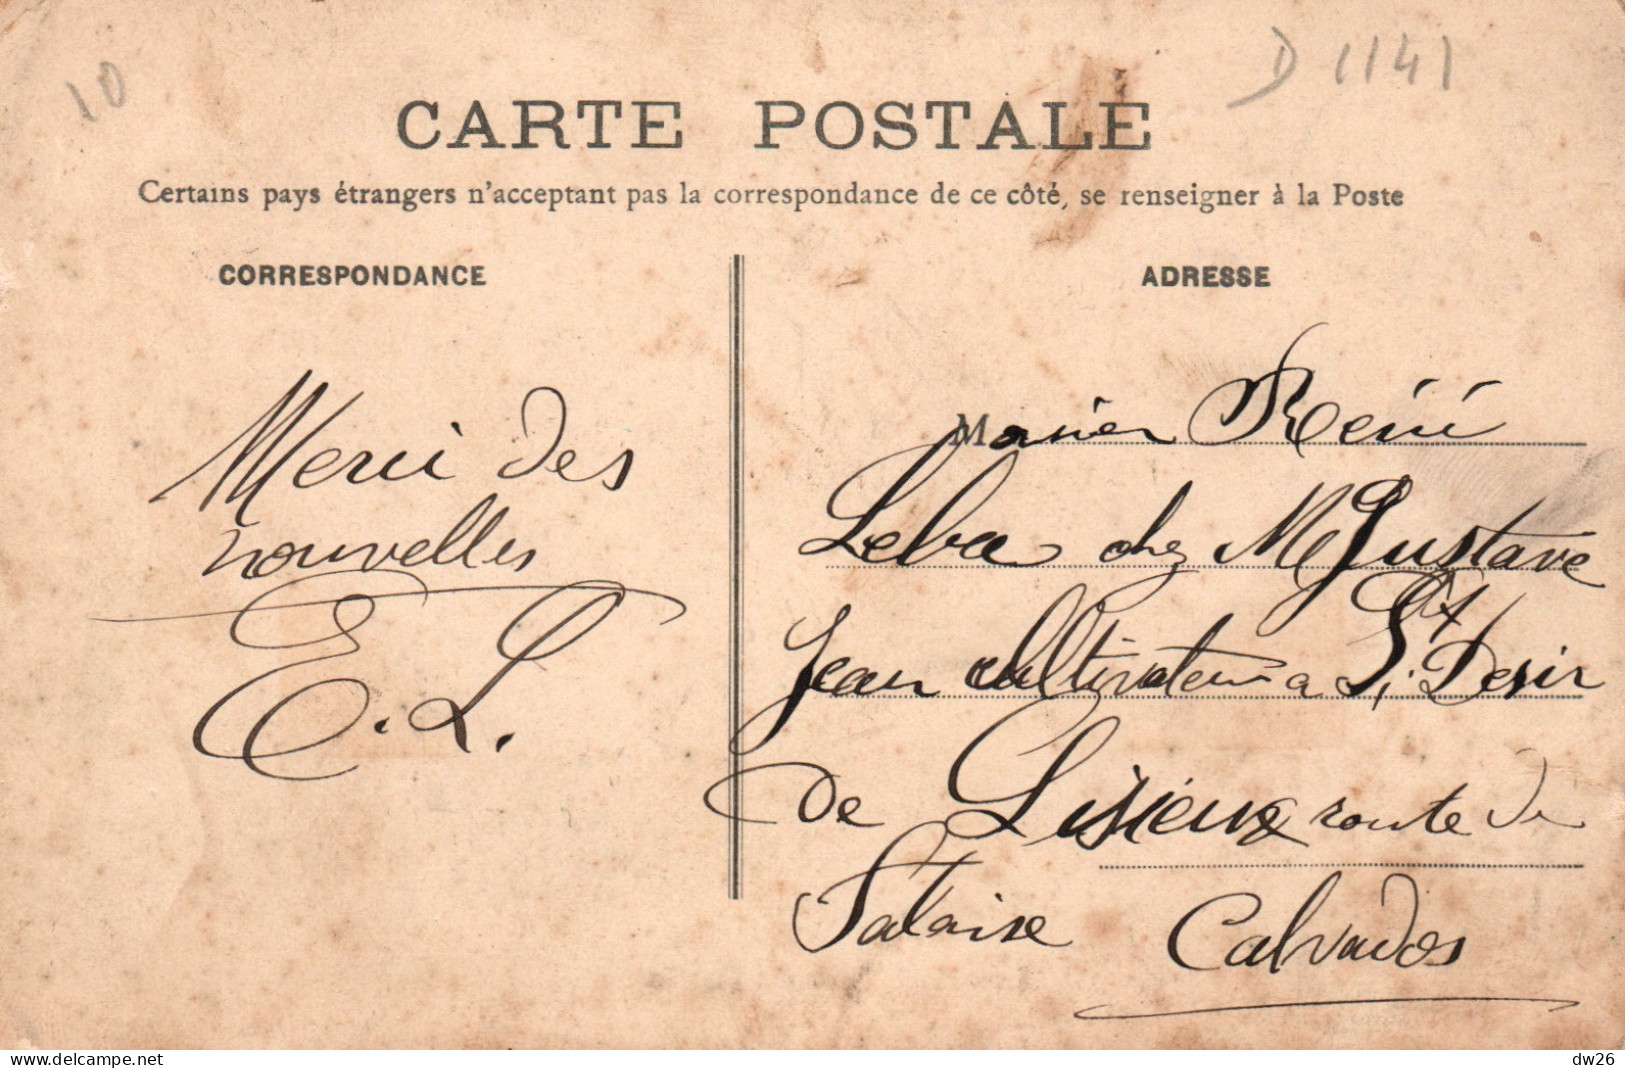 10
D 1141
CARTE POSTALE
Certains pays étrangers n'acceptant pas la correspondance de ce côté, se renseigner à la Poste
CORRESPONDANCE
Merci des
nouvelles
E. L.
ADRESSE
René
chez Mr Gustave
Jean cultivateur a St Desir
de Lisieux route de
Falaise Calvados
delcampe.net
dw26